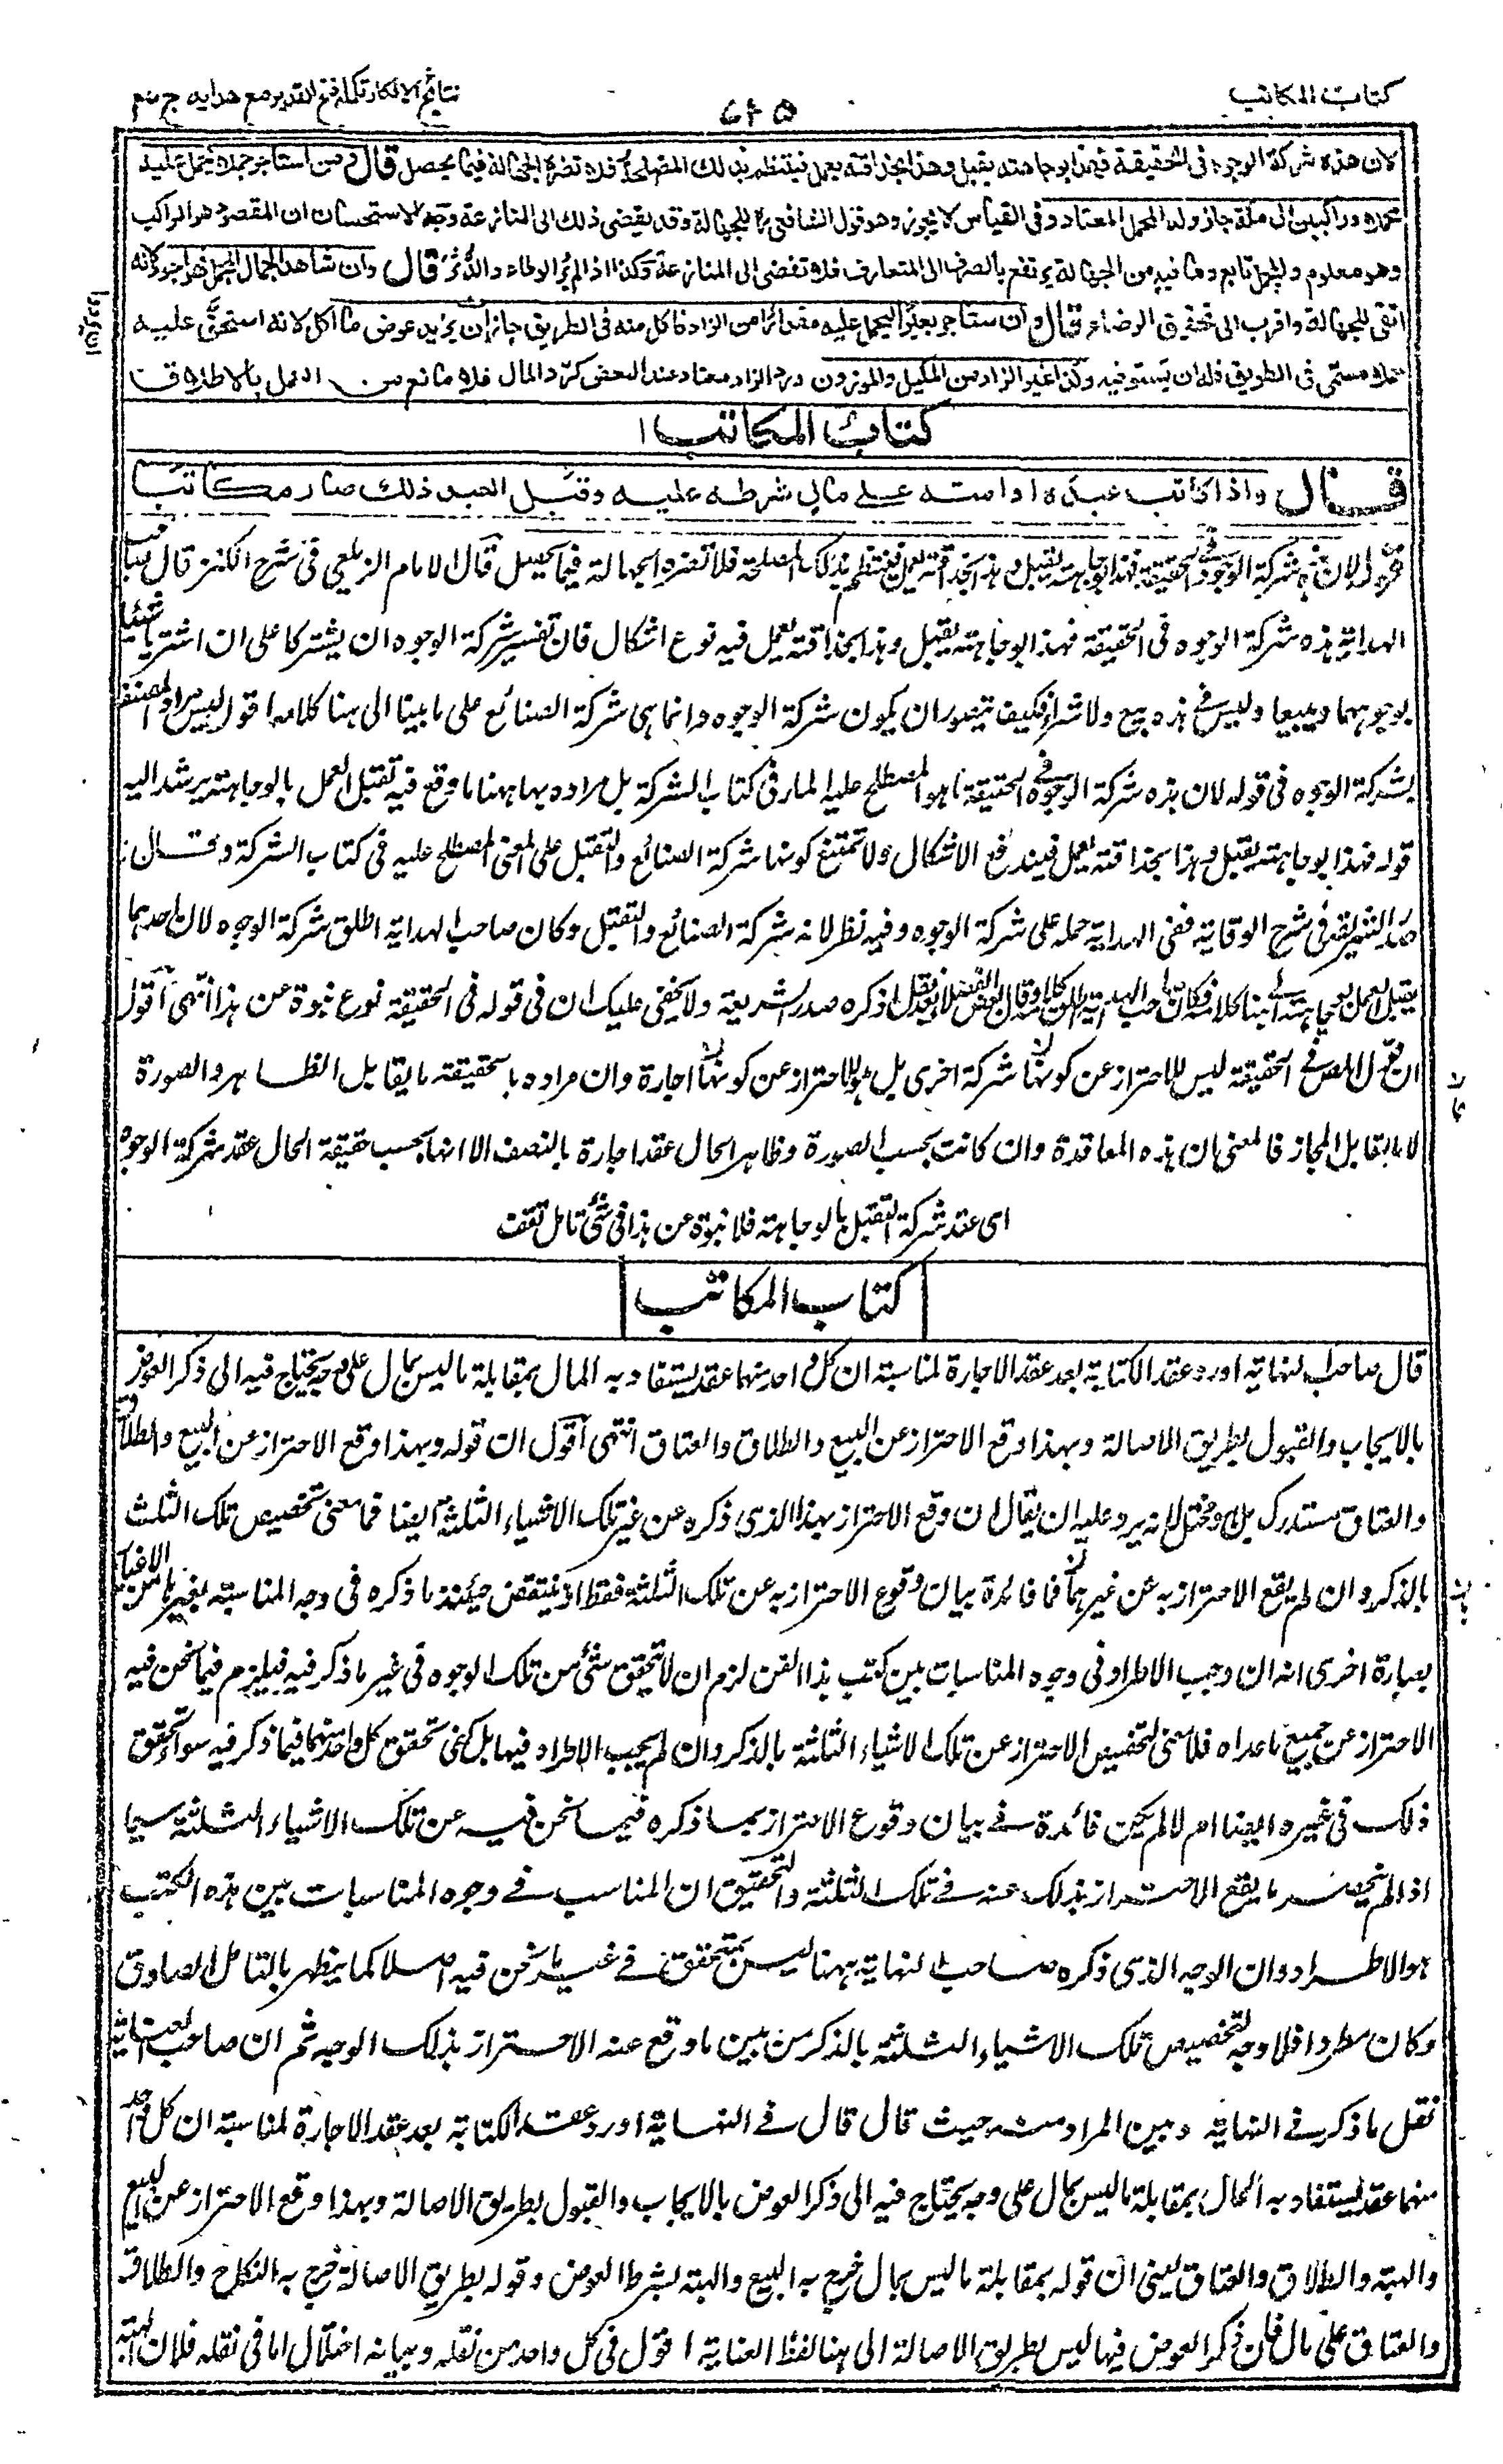 كتاب المكاتب
٥٦٧
نتائج الافكار تكملة فتح القدير مع هدايه ج
لان هذه شركة الوجوه فى الحقيقة فهذا بوجاهته يقبل وهذا بحذاقته يعمل فينتظم بذلك المصلحة فلا تضره الجهالة فيما يحصل قال ومن استاجر جملا يحمل عليه
محملا وراكبين الى مكة جاز وله المحمل المعتاد وفى القياس لا يجوز وهو قول الشافعى للجهالة وقد يفضى ذلك الى المنازعة وجه الاستحسان ان المقصود هو الراكب
وهو معلوم والمحمل تابع وما فيه من الجهالة يرتفع بالصرف الى المتعارف فلا تفضى الى المنازعة وكذا اذا لم ير الوطاء والدثر قال وان شاهد الجمال المحمل فهو اجود لانه
انفى للجهالة واقرب الى تحقيق الرضاء قال وان استاجر بعيرا ليحمل عليه مقدارا من الزاد فاكل منه فى الطريق جاز ان يزيد عوض ما اكل لانه استحق عليه
حملا مسمى فى الطريق فله ان يستوفيه وكذا غير الزاد من المكيل والموزون ورد الزاد معتاد عند البعض كرد المال فلا مانع من العمل بالاطلاق
كتاب المكاتب
قال واذا كاتب عبده او امته على مال شرطه عليه وقبل العبد ذلك صار مكاتبا
قوله لان هذه شركة الوجوه فى الحقيقة فهذا بوجاهته يقبل وهذا بحذاقته يعمل فينتظم بذلك المصلحة فلا تضره الجهالة فيما يحصل قال الامام الزيلعى فى شرح الكنز قال صاحب
الهداية هذه شركة الوجوه فى الحقيقة فهذا بوجاهته يقبل وهذا بحذاقته يعمل فيه نوع اشكال فان تفسير شركة الوجوه ان يشتركا على ان اشتريا شيئا
بوجوههما ويبيعا وليس فى هذه بيع ولا شراء فكيف يتصور ان يكون شركة الوجوه وانما هى شركة الصنائع على ما بينا الى هنا كلامه اقول ليس مراد المصنف
بشركة الوجوه فى قوله لان هذه شركة الوجوه فى الحقيقة ما هو المصطلح عليه المار فى كتاب الشركة بل مراده بها ههنا ما وقع فيه تقبل العمل بالوجاهة يرشد اليه
قوله فهذا بوجاهته يقبل وهذا بحذاقته يعمل فيندفع الاشكال ولا تمتنع كونها شركة الصنائع والتقبل على المعنى المصطلح عليه فى كتاب الشركة وقال
صدر الشريعة فى شرح الوقاية ففى الهداية حمله على شركة الوجوه وفيه نظر لانه شركة الصنائع والتقبل وكان صاحب الهداية اطلق شركة الوجوه لان احدهما
يقبل العمل بوجاهته الى هنا كلامه وقال بعض الفضلاء بعد نقل ما ذكره صدر الشريعة ولا يخفى عليك ان فى قوله فى الحقيقة نوع نبوة عن هذا انتهى اقول
ان قول المصنف فى الحقيقة ليس للاحتراز عن كونها شركة اخرى بل هو للاحتراز عن كونها اجارة وان مراده بالحقيقة ما يقابل الظاهر والصورة
لا ما يقابل المجاز فالمعنى ان هذه المعاقدة وان كانت بحسب الصورة وظاهر الحال عقد اجارة بالنصف الا انها بحسب حقيقة الحال عقد شركة الوجوه
اى عقد شركة التقبل بالوجاهة فلا نبوة عن هذا فى شئ تامل تقف
كتاب المكاتب
قال صاحب النهاية اورد عقد الكتابة بعد عقد الاجارة لمناسبة ان كل واحد منهما عقد يستفاد به المال بمقابلة ما ليس بمال على وجه يحتاج فيه الى ذكر العوض
بالايجاب والقبول بطريق الاصالة وبهذا وقع الاحتراز عن البيع والطلاق والعتاق انتهى اقول ان قوله وبهذا وقع الاحتراز عن البيع والطلاق
والعتاق مستدرك بل هو مختل لانه يرد عليه ان يقال ان وقع الاحتراز بهذا الذى ذكره عن غير تلك الاشياء الثلثة ايضا فما معنى تخصيص تلك الثلث
بالذكر وان لم يقع الاحتراز به عن غيرها فما فائدة بيان وقوع الاحتراز به عن تلك الثلثة فقط اذ ينتقض حينئذ ما ذكره فى وجه المناسبة بغيرها من الاغيار
بعبارة اخرى انه ان وجب الاطراد فى وجوه المناسبات بين كتب هذا الفن لزم ان لا تحقق شئ من تلك الوجوه فى غير ما ذكر فيه فيلزم فيما نحن فيه
الاحتراز عن جميع ما عداه فلا معنى لتخصيص الاحتراز عن تلك الاشياء الثلاثة بالذكر وان لم يجب الاطراد فيها بل كفى تحقق كل واحد منها فيما ذكر فيه سواء تحقق
ذلك فى غيره ايضا ام لا لم يكن فائدة فى بيان وقوع الاحتراز بما ذكره فيما نحن فيه عن تلك الاشياء الثلثة سيما
اذا لم ينحصر ما يقع الاحتراز بذلك عنه فى تلك الثلثة والتحقيق ان المناسب فى وجوه المناسبات بين هذه الكتب
هو الاطراد وان الوجه الذى ذكره صاحب النهاية ههنا ليس بمتحقق فى غير ما نحن فيه اصلا كما يظهر بالتامل الصادق
وكان مطردا فلا وجه لتخصيص تلك الاشياء الثلثة بالذكر من بين ما وقع عنه الاحتراز بذلك الوجه ثم ان صاحب العناية
نقل ما ذكر فى النهاية وبين المراد منه حيث قال قال فى النهاية اورد عقد الكتابة بعد عقد الاجارة لمناسبة ان كل واحد
منهما عقد يستفاد به المال بمقابلة ما ليس بمال على وجه يحتاج فيه الى ذكر العوض بالايجاب والقبول بطريق الاصالة وبهذا وقع الاحتراز عن البيع
والهبة والطلاق والعتاق يعنى ان قوله بمقابلة ما ليس بمال خرج به البيع والهبة بشرط العوض وقوله بطريق الاصالة خرج به النكاح والطلاق
والعتاق على مال فان ذكر العوض فيها ليس بطريق الاصالة الى هنا لفظ العناية اقول فى كل واحد من نقله وبيانه اختلال اما فى نقله فلان الهبة